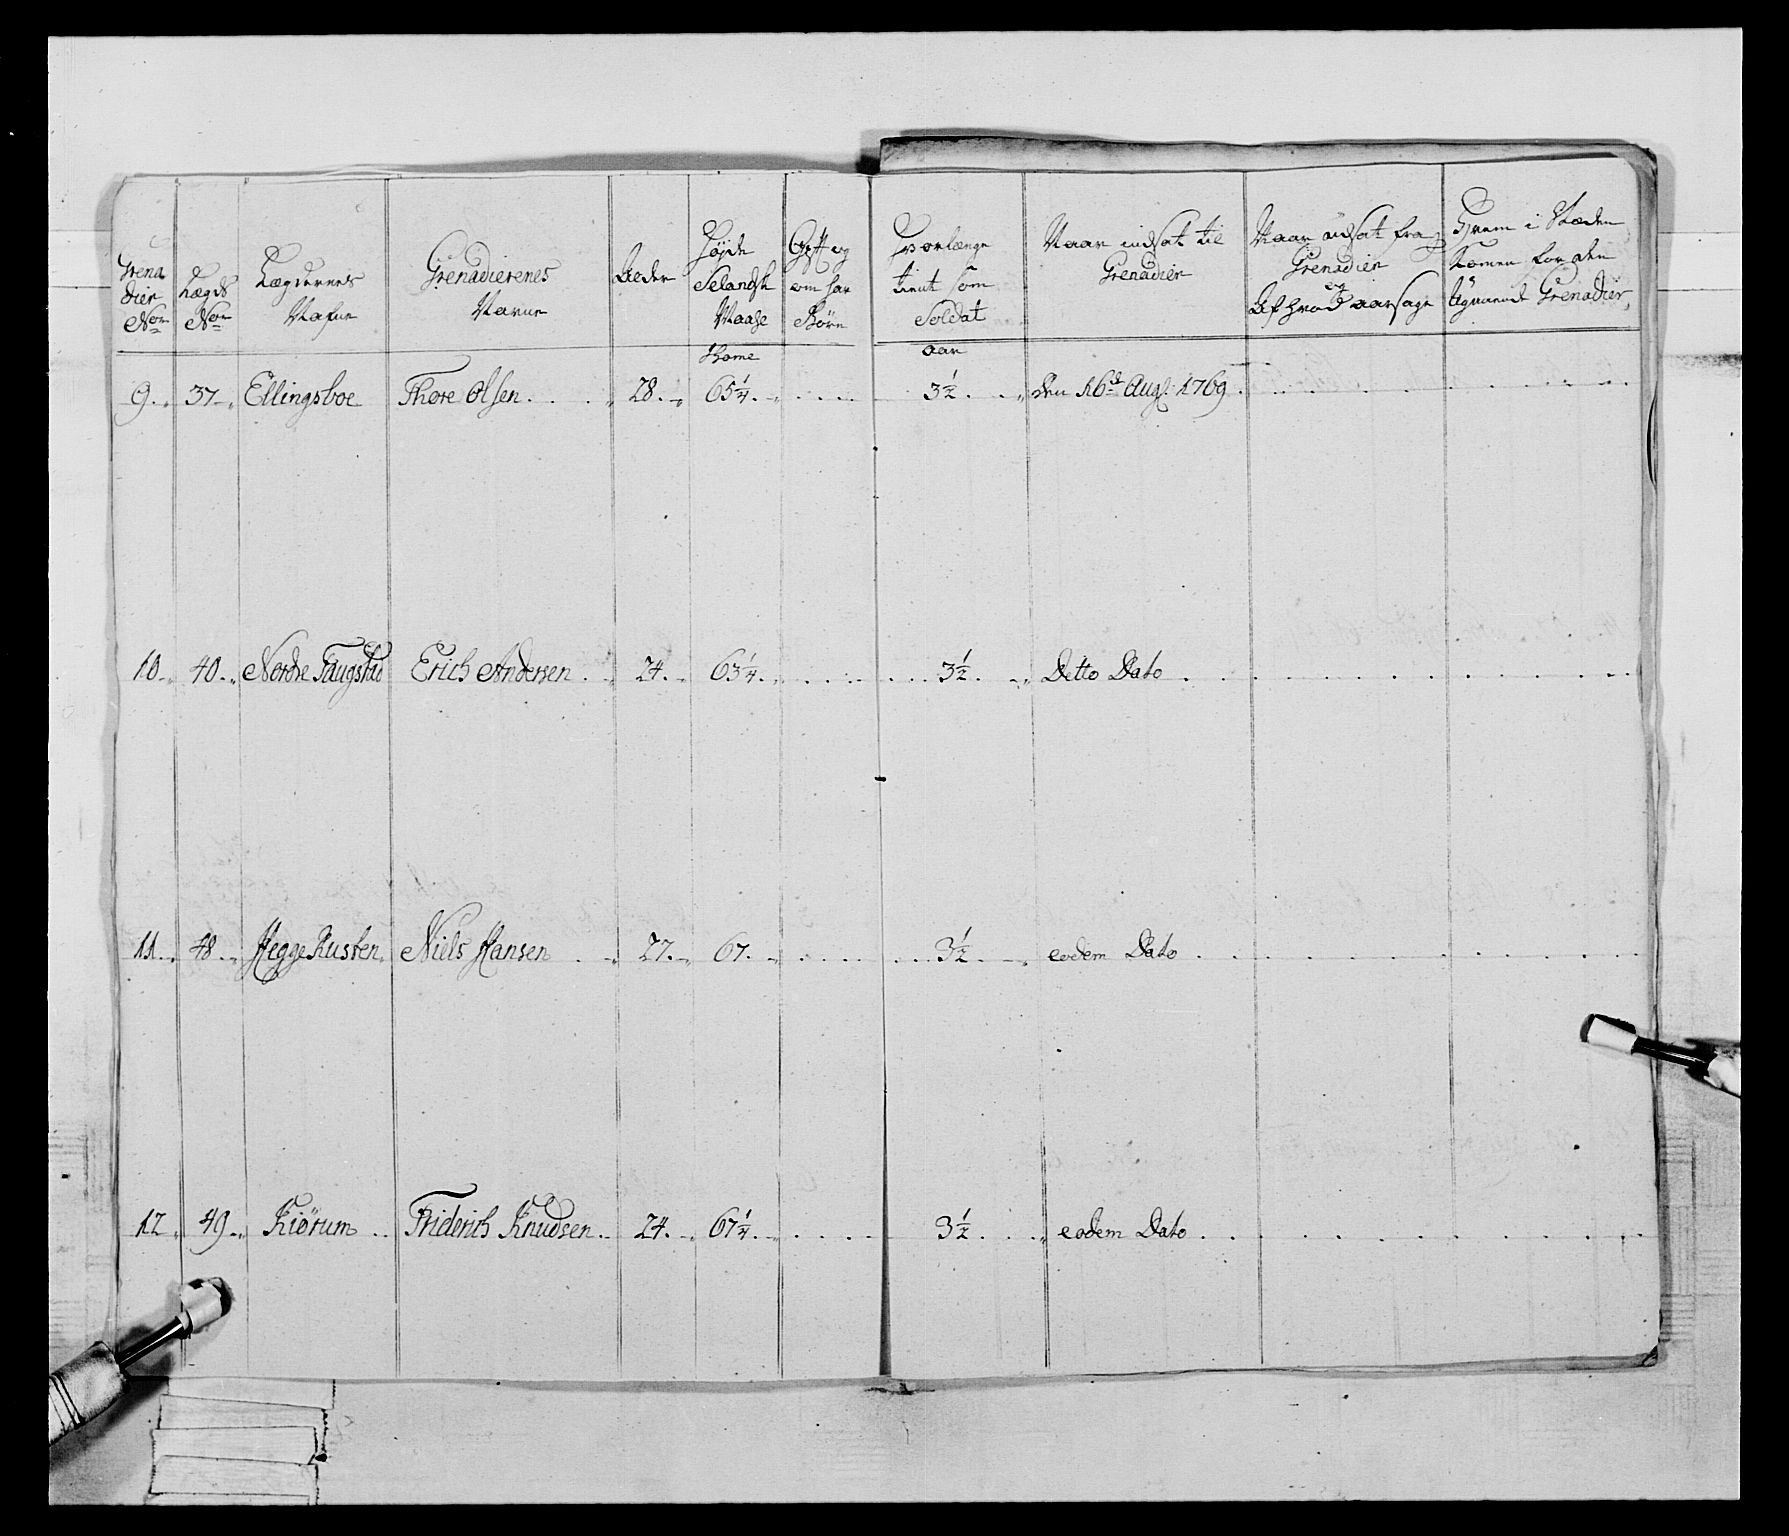 Grena
dier
No
Lægds
No
Lægdernes
Nafne
Grenadierenes
Navne
Alder
Høyde
Selandsk
Maal
Gift og
om har
Børn
Hvorlænge
tient som
Soldat
Naar indsat til
Grenadier
Naar udsat fra
Grenadier
og
Af hvad aarsage
Hvem i Stæden
kommen for den
Grenadier
Tome
aar
9. 37. Ellingsboe Thore Olsen 28. 65 1/4. 3 1/2. den 16de Augs: 1769.
10. 40. Nordre Faugstad Erich Andersen 24. 63 1/4. 3 1/2. Detto Dato
11. 48. Hegge Rusten Niels Hansen 27. 67. 3 1/2. eodem Dato
12 49. Kiörum Friderich Knudsen 24. 67 1/4. 3 1/2. eodem Dato